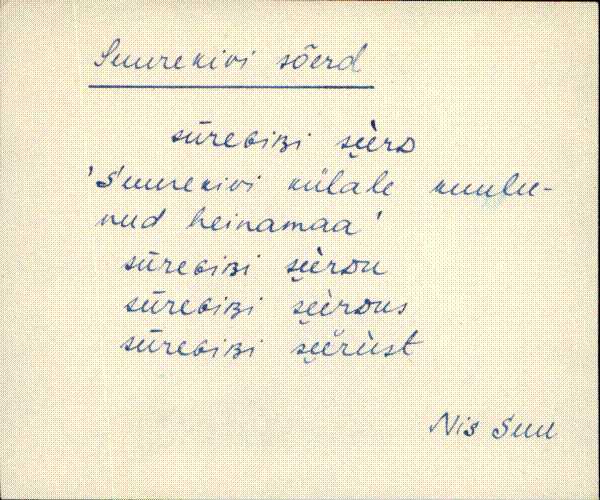 Suurekivi sõerd
sūreɢiʙi sèìrᴅ
'Suurekivi külale kuulu-
nud heinamaa'
sūreɢiʙi sèìrᴅu
sūreɢiʙi sèìrᴅus
sūreɢiʙi sèìrùst
Nis Suu